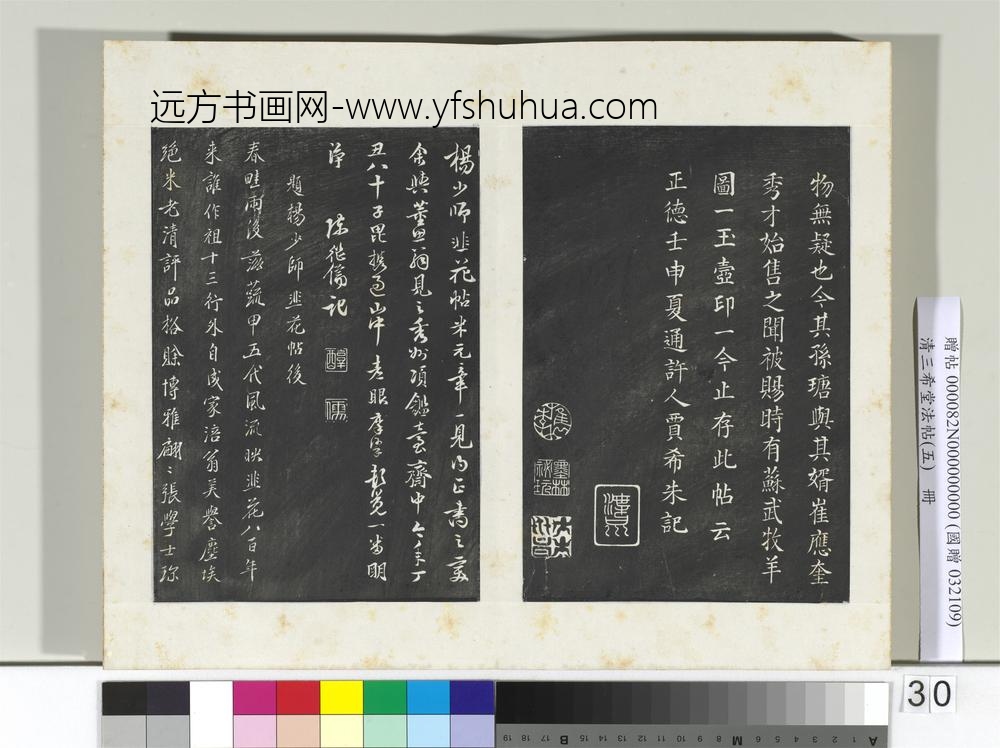 远方书画网-www.yfshuhua.com
物無疑也今其孫瑭與其婿崔應奎
秀才始售之聞被賜時有蘇武牧羊
圖一玉壺印一今止存此帖云
正德壬申夏通許人賈希朱記
楊少師韭花帖米元章一見
余與董思翁見之秀州項鑑臺齋中今年丁
丑八十子昆攜過山中老眼摩挲輒覺一番明
淨
陳繼儒記
醇
儒
題楊少師韭花帖後
春畦雨後茲蔬甲五代風流映韭花八百年
来誰作祖十三行外自成家涪翁美譽塵埃
絕米老清評品格賒博雅翩〻張學士珍
贈帖 000082N000000000 (國贈 032109)
清三希堂法帖(五) 冊
30
19 18 17 16 15 B 14 13 12 11 10 9 8 M 7 6 5 4 3 2 1 A